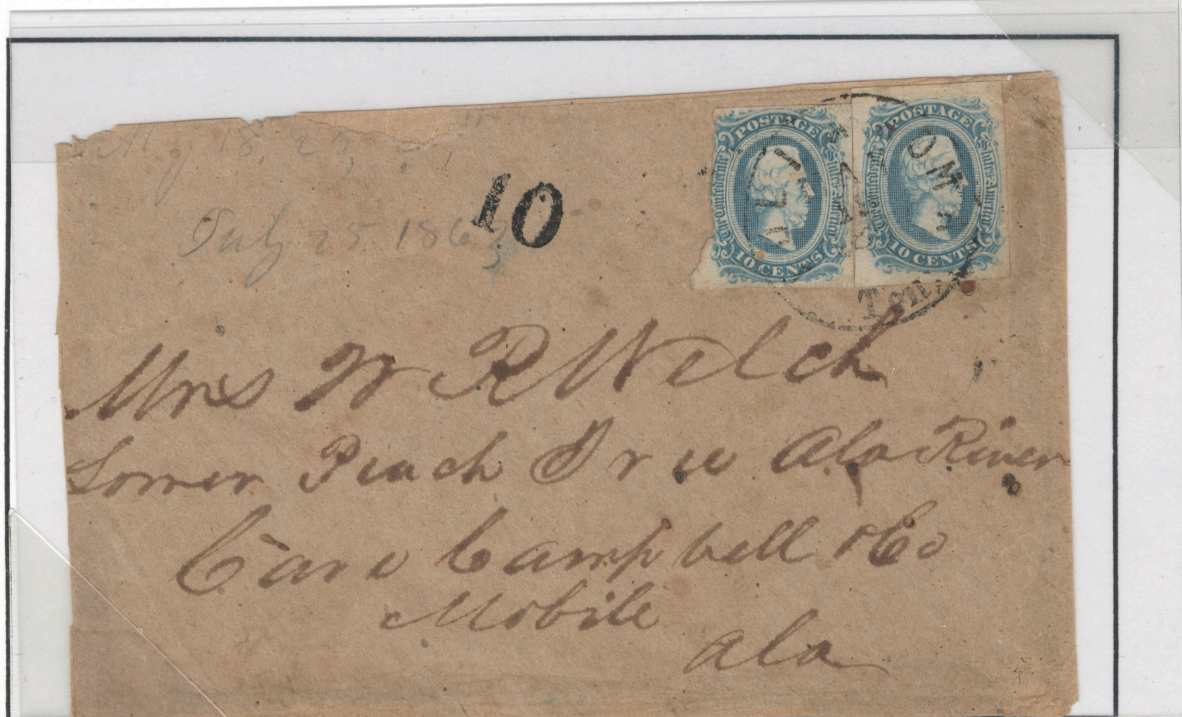 July 25 1863
10
POSTAGE
The Confederate States America
10 CENTS
POSTAGE
The Confederate States America
10 CENTS
TULLAHOMA
Ten.
Mrs W R Welch
Lower Peach Tree Ala River
Care Campbell & Co
Mobile
Ala